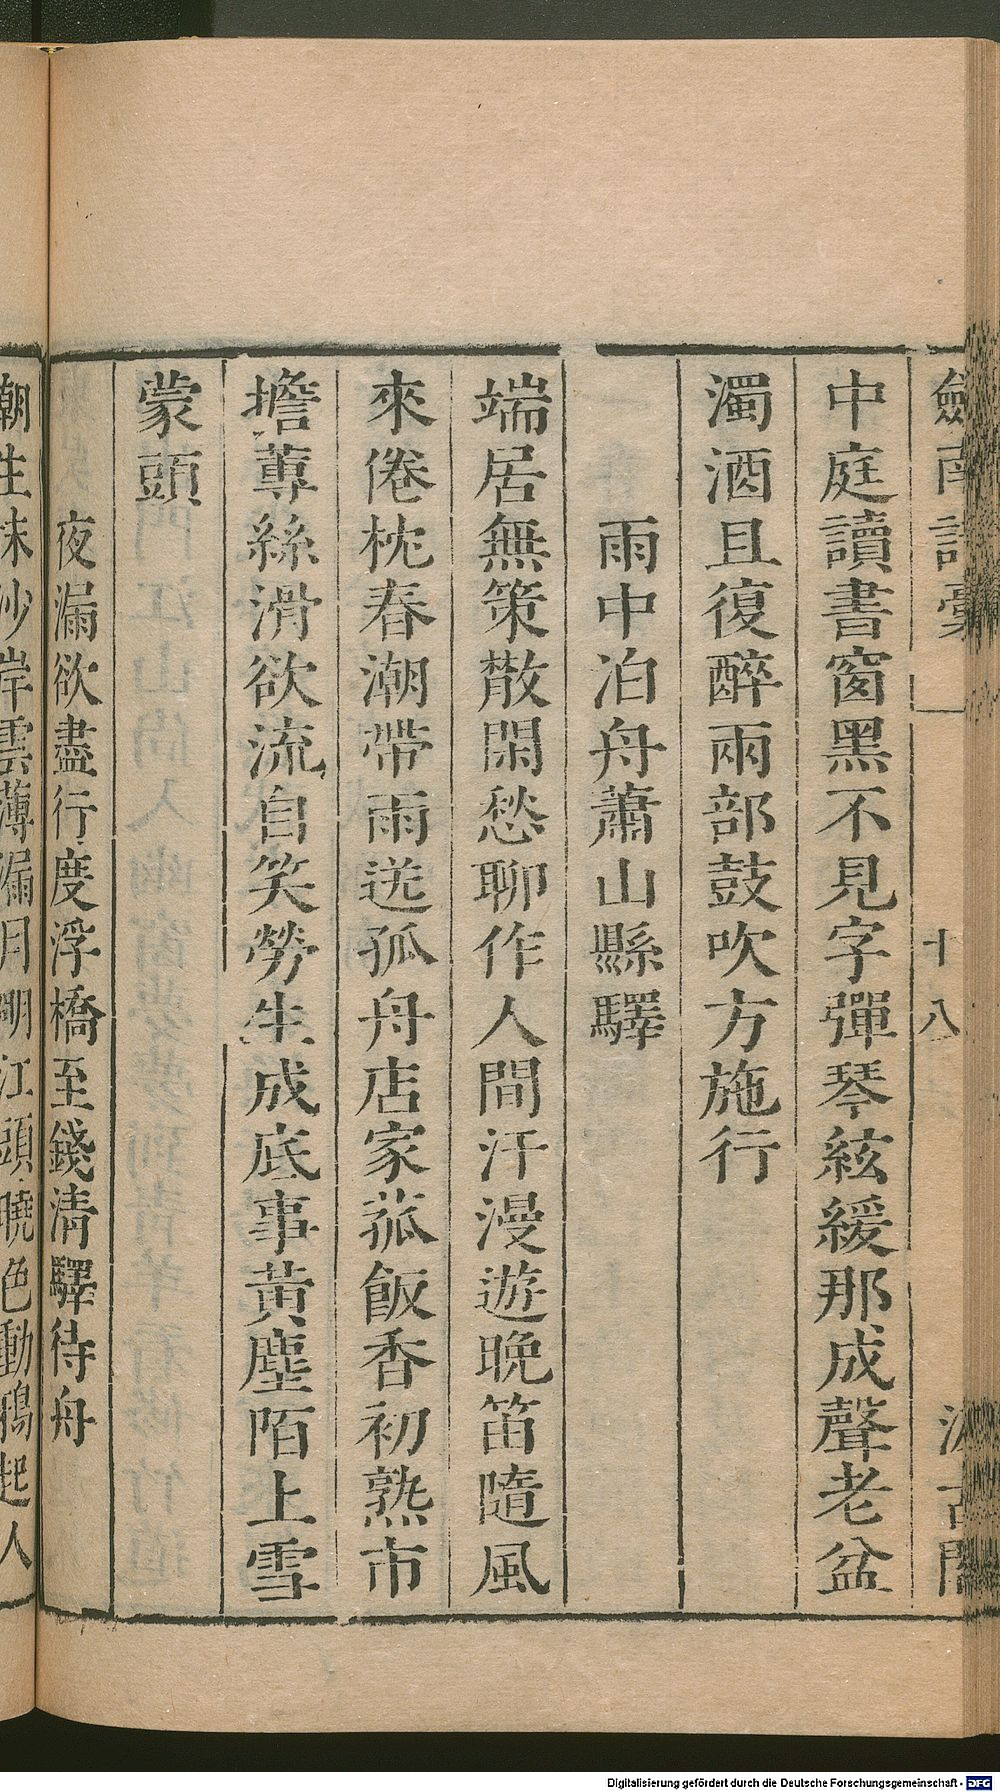 劍南詩稾 一 十八 汲古閣
中庭讀書窗黑不見字彈琴絃緩那成聲老盆
濁酒且復醉兩部鼓吹方施行
雨中泊舟蕭山縣驛
端居無策散閑愁聊作人間汗漫遊晚笛隨風
來倦枕春潮帶雨送孤舟店家菰飯香初熟市
擔蓴絲滑欲流自笑勞生成底事黃塵陌上雪
蒙頭
夜漏欲盡行度浮橋至錢清驛待舟
潮生沬沙岸雲薄漏月明江頭曉色動鴉起人
Digitalisierung gefördert durch die Deutsche Forschungsgemeinschaft - DFG